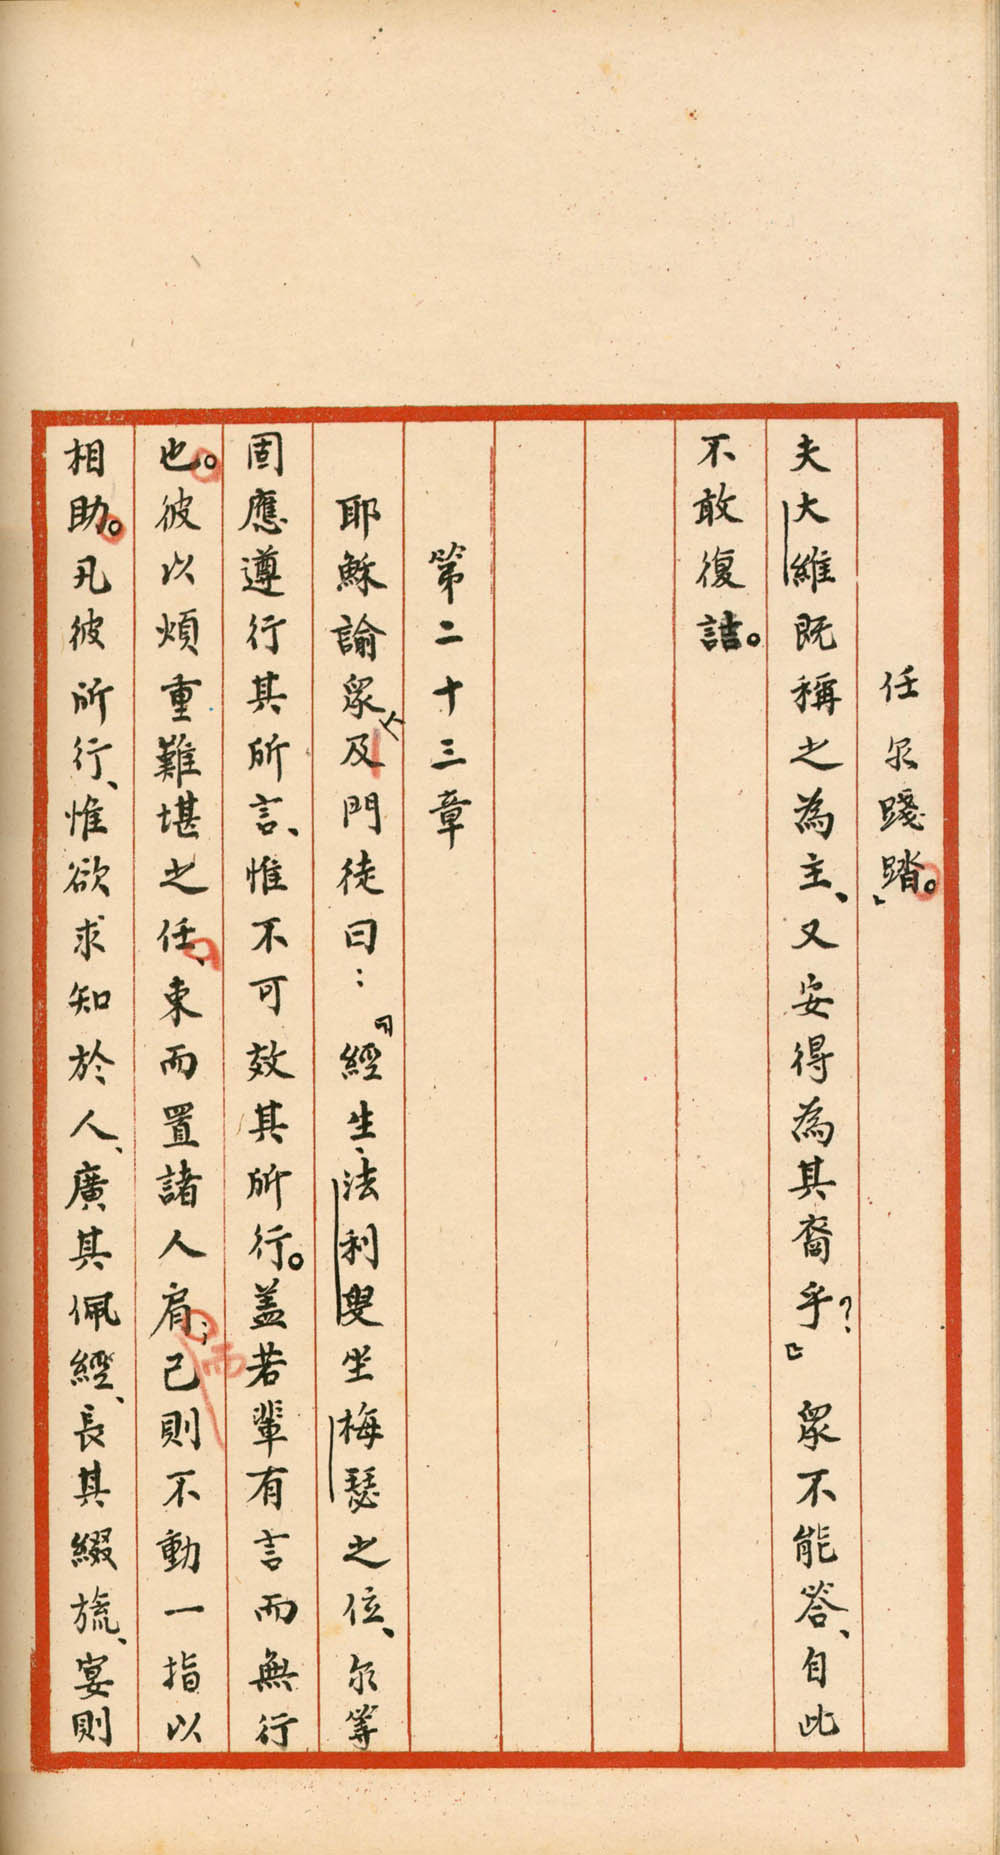 任尔踐踏。」
夫大維既稱之為主、又安得為其裔乎?』眾不能答、自此
不敢復詰。
第二十三章
耶穌諭眾及門徒曰:『經生、法利叟坐梅瑟之位、尔等
固應遵行其所言、惟不可效其所行。蓋若輩有言而無行
也。彼以煩重難堪之任、束而置諸人肩;己則不動一指以
而
相助。凡彼所行、惟欲求知於人、廣其佩經、長其綴旒、宴則